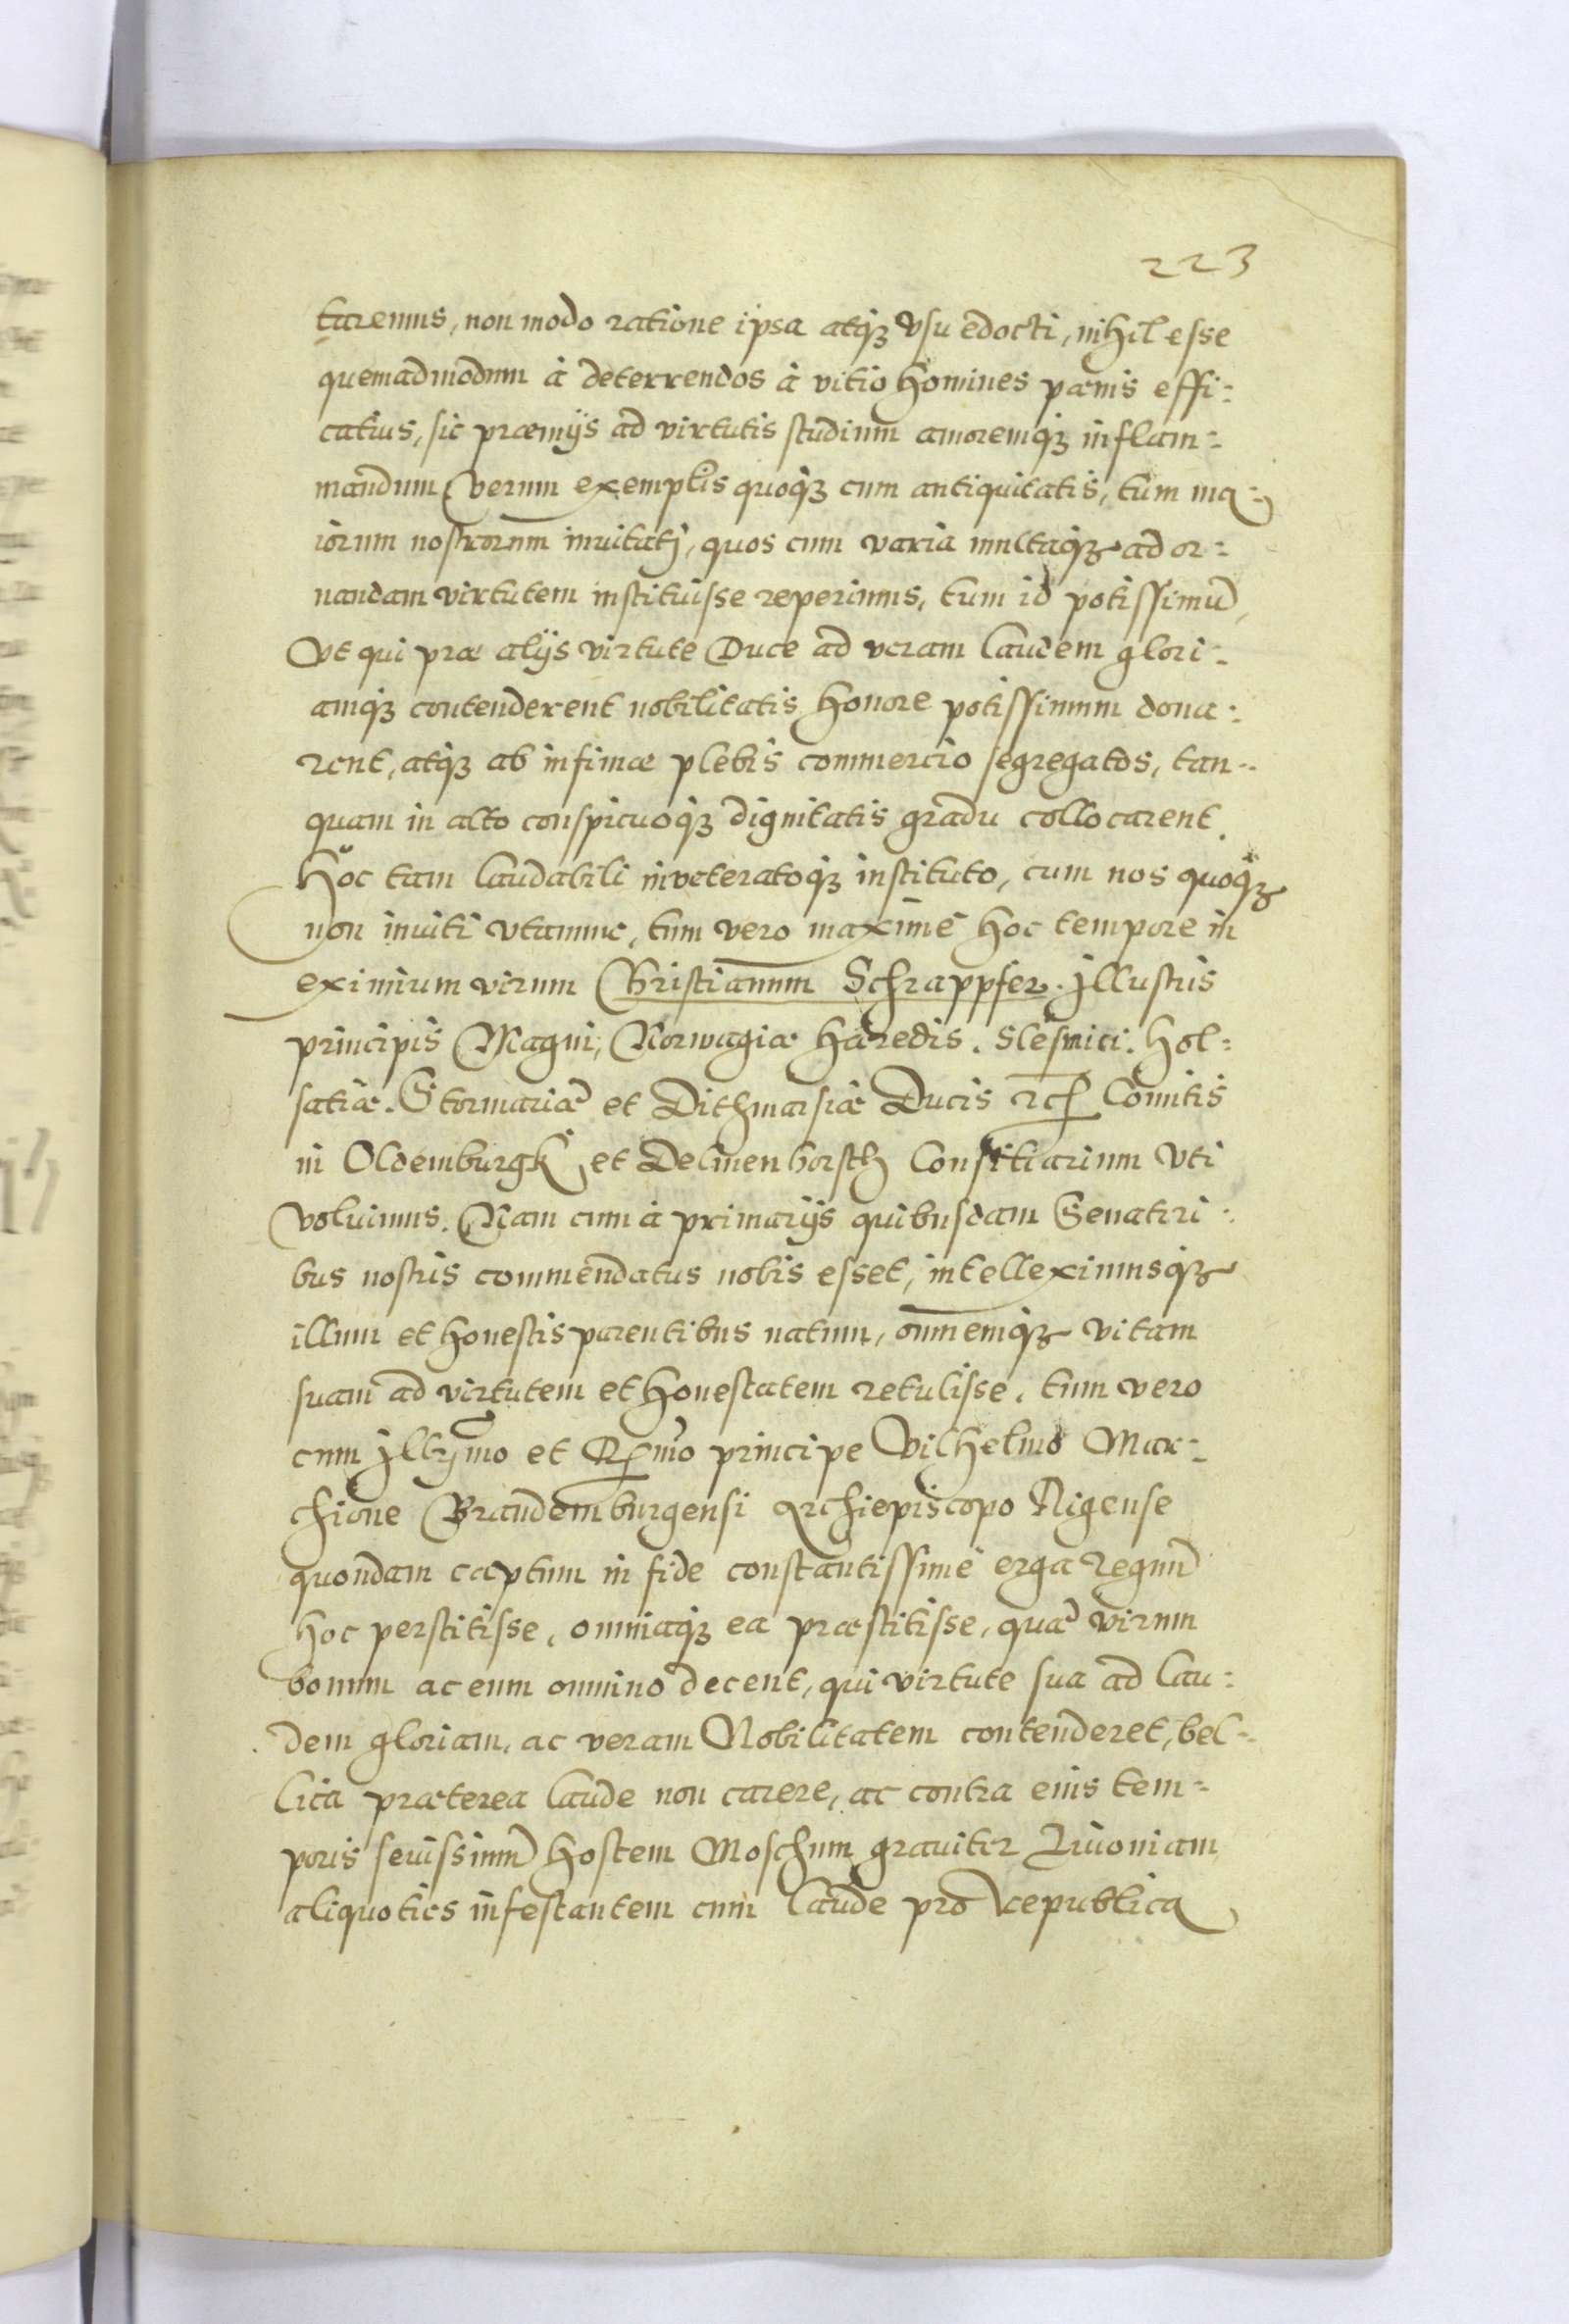 223
taremus, non modo ratione ipsa atq3 vsu edocti, nihil esse
quemadmodum à deterrendos à vitio homines pœnis effi:
catius, sic præmijs ad virtutis studium amoremq3 inflam:
mandum Verum exemplis quoq3 cum antiquitatis, tum ma:
iorum nostrorum inuitatj, quos cum varia multaq3 ad or:
nandam virtutem instituisse reperimus, tum id potissimũ,
Vt qui præ alijs virtute Duce ad veram laudem glori:
amq3 contenderent nobilitatis honore potissimum dona:
rent, atq3 ab infimæ plebis commercio segregatos, tan:
quam in alto conspicuoq3 dignitatis gradu collocarent.
Hoc tam laudabili inveteratoq3 instituto, cum nos quoq3
non inuiti vtamur, tum vero maximè hoc tempore in
eximium virum Christianum Schrappfer. Jllustris
principis Magni, Norwagiæ hæredis. Slesuici. Hol:
satiæ. Stormariæ et Dithmarsiæ Ducis etc̃ Comitis
in Oldemburgk, et Delmenhorsth Consiliarium Vti
voluimus. Nam cum à primarijs quibusdam Senatori:
bus nostris commendatus nobis esset, intelleximusq3
illum et honestis parentibus natum, omnemq3 vitam
suam ad virtutem et honestatem retulisse, tum vero
cum Jllmo et Rmo principe Vilhelmo Mar:
chione Brandemburgensi Archiepiscopo Rigense
quondam captum in fide constantissimè erga regnũ
hoc perstitisse, omniaq3 ea præstitisse, quæ virum
bonum ac eum omnino decent, qui virtute sua ad lau:
dem gloriam, ac veram Nobilitatem contenderet, bel:
lica præterea laude non carere, ac contra eius tem:
poris seuissimũ hostem Moschum grauiter Liuoniam
aliquoties infestantem cum laude pro republica